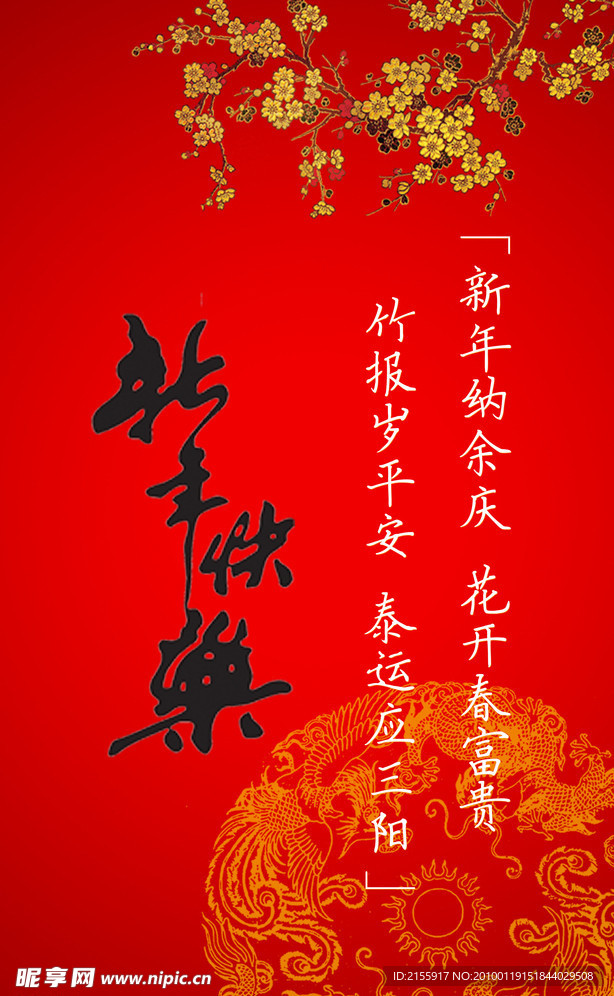 「新年纳余庆 花开春富贵
竹报岁平安 泰运应三阳」
新年快樂
昵享网 www.nipic.cn
ID:2155917 NO:20100119151844029508